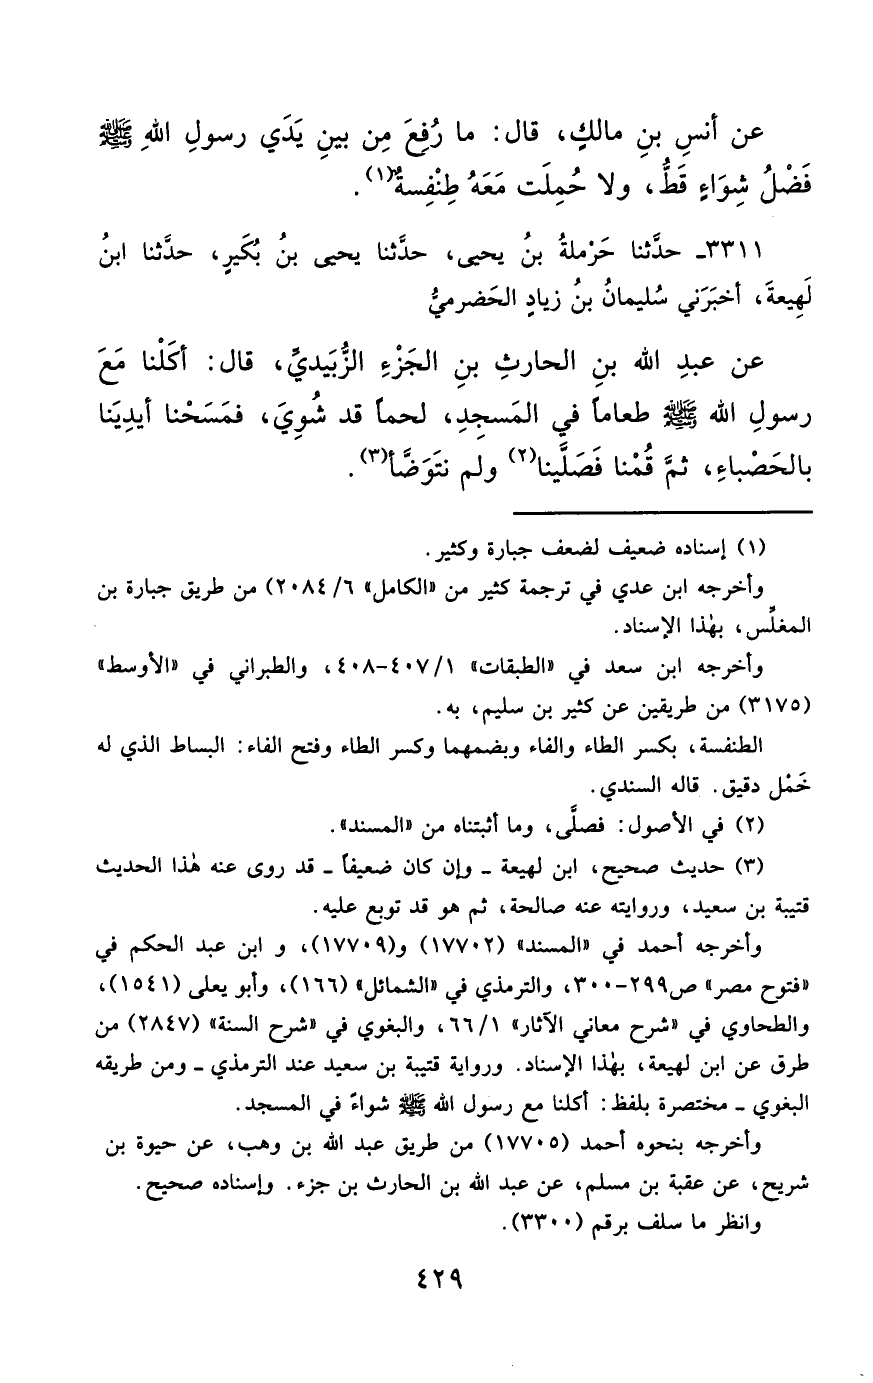 عن أنسِ بنِ مالكٍ، قال: ما رُفِعَ مِن بينِ يَدَي رسولِ اللهِ ﷺ
فَضْلُ شِوَاءٍ قَطُّ، ولا حُمِلَت مَعَهُ طِنْفِسةٌ(١).
٣٣١١ـ حدَّثنا حَرْملةُ بنُ يحيى، حدَّثنا يحيى بنُ بُكَيرٍ، حدَّثنا ابنُ
لَهِيعةَ، أخبَرَني سُليمانُ بنُ زيادٍ الحَضرميُّ
عن عبدِ الله بنِ الحارثِ بنِ الجَزْءِ الزُّبَيديِّ، قال: أكَلْنا مَعَ
رسولِ الله ﷺ طعاماً في المَسجِدِ، لحماً قد شُوِيَ، فمَسَحْنا أيدِيَنا
بالحَصْباءِ، ثمَّ قُمْنا فَصَلَّينا(٢) ولم نتَوَضَّأ(٣).
(١) إسناده ضعيف لضعف جبارة وكثير.
وأخرجه ابن عدي في ترجمة كثير من «الكامل» ٦/ ٢٠٨٤) من طريق جبارة بن
المغلِّس، بهٰذا الإسناد.
وأخرجه ابن سعد في «الطبقات» ١/ ٤٠٧-٤٠٨، والطبراني في «الأوسط»
(٣١٧٥) من طريقين عن كثير بن سليم، به.
الطنفسة، بكسر الطاء والفاء وبضمهما وكسر الطاء وفتح الفاء: البساط الذي له
خَمْل دقيق. قاله السندي.
(٢) في الأصول: فصلَّى، وما أثبتناه من «المسند».
(٣) حديث صحيح، ابن لهيعة ـ وإن كان ضعيفاً ـ قد روى عنه هٰذا الحديث
قتيبة بن سعيد، وروايته عنه صالحة، ثم هو قد توبع عليه.
وأخرجه أحمد في «المسند» (١٧٧٠٢) و(١٧٧٠٩)، و ابن عبد الحكم في
«فتوح مصر» ص٢٩٩-٣٠٠، والترمذي في «الشمائل» (١٦٦)، وأبو يعلى (١٥٤١)،
والطحاوي في «شرح معاني الآثار» ١/ ٦٦، والبغوي في «شرح السنة» (٢٨٤٧) من
طرق عن ابن لهيعة، بهٰذا الإسناد. ورواية قتيبة بن سعيد عند الترمذي ـ ومن طريقه
البغوي ـ مختصرة بلفظ: أكلنا مع رسول الله ﷺ شواءً في المسجد.
وأخرجه بنحوه أحمد (١٧٧٠٥) من طريق عبد الله بن وهب، عن حيوة بن
شريح، عن عقبة بن مسلم، عن عبد الله بن الحارث بن جزء. وإسناده صحيح.
وانظر ما سلف برقم (٣٣٠٠).
٤٢٩